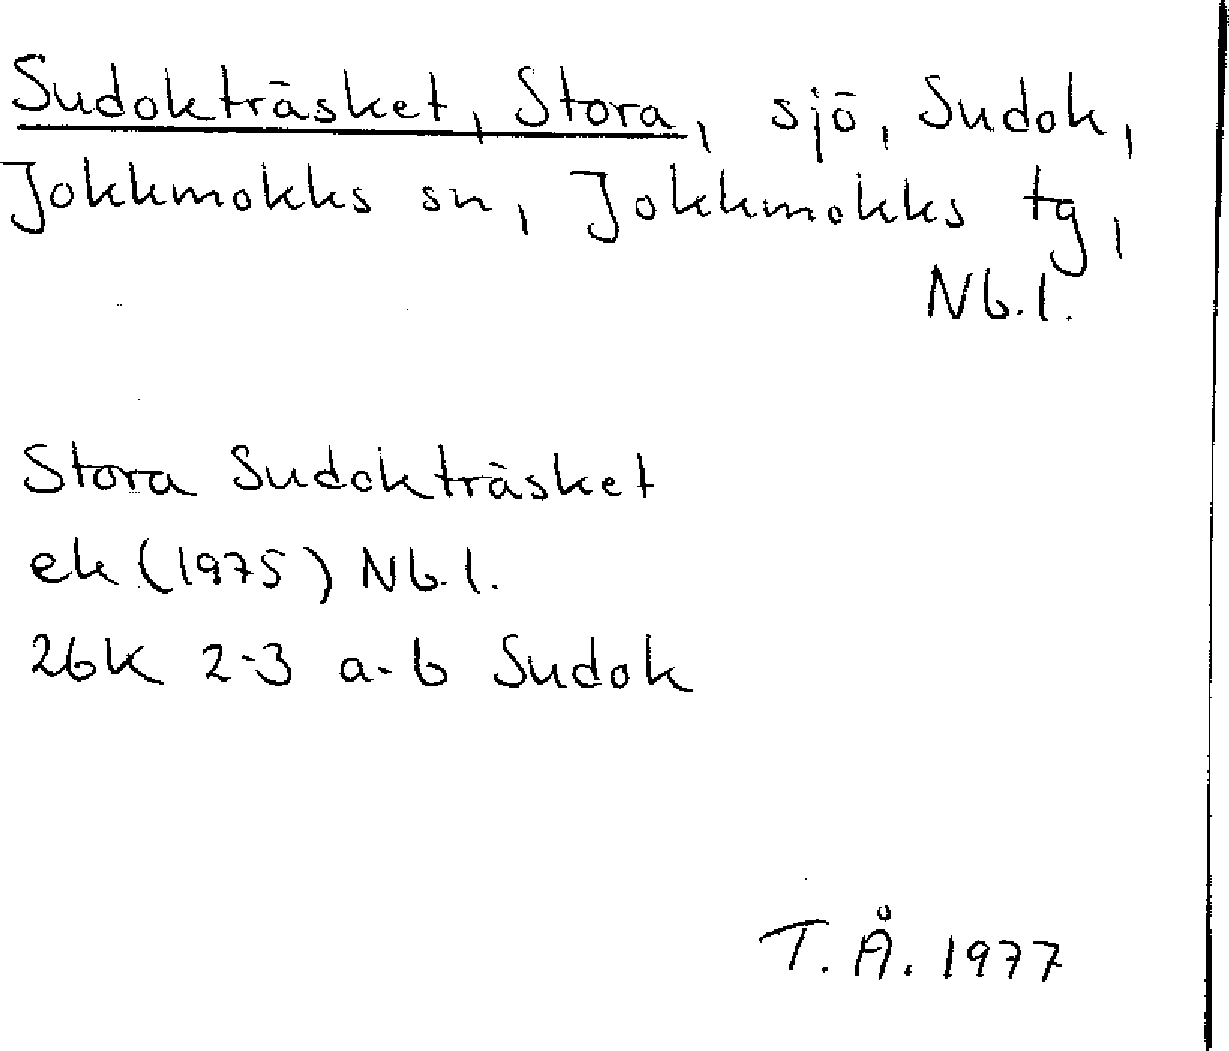 Sudokträsket, Stora, sjö, Sudok,
Jokkmokks sn, Jokkmokks tg,
Nb.l.
Stora Sudokträsket
ek (1975) Nb.l.
26K 2-3 a-b Sudok
T.Å. 1977